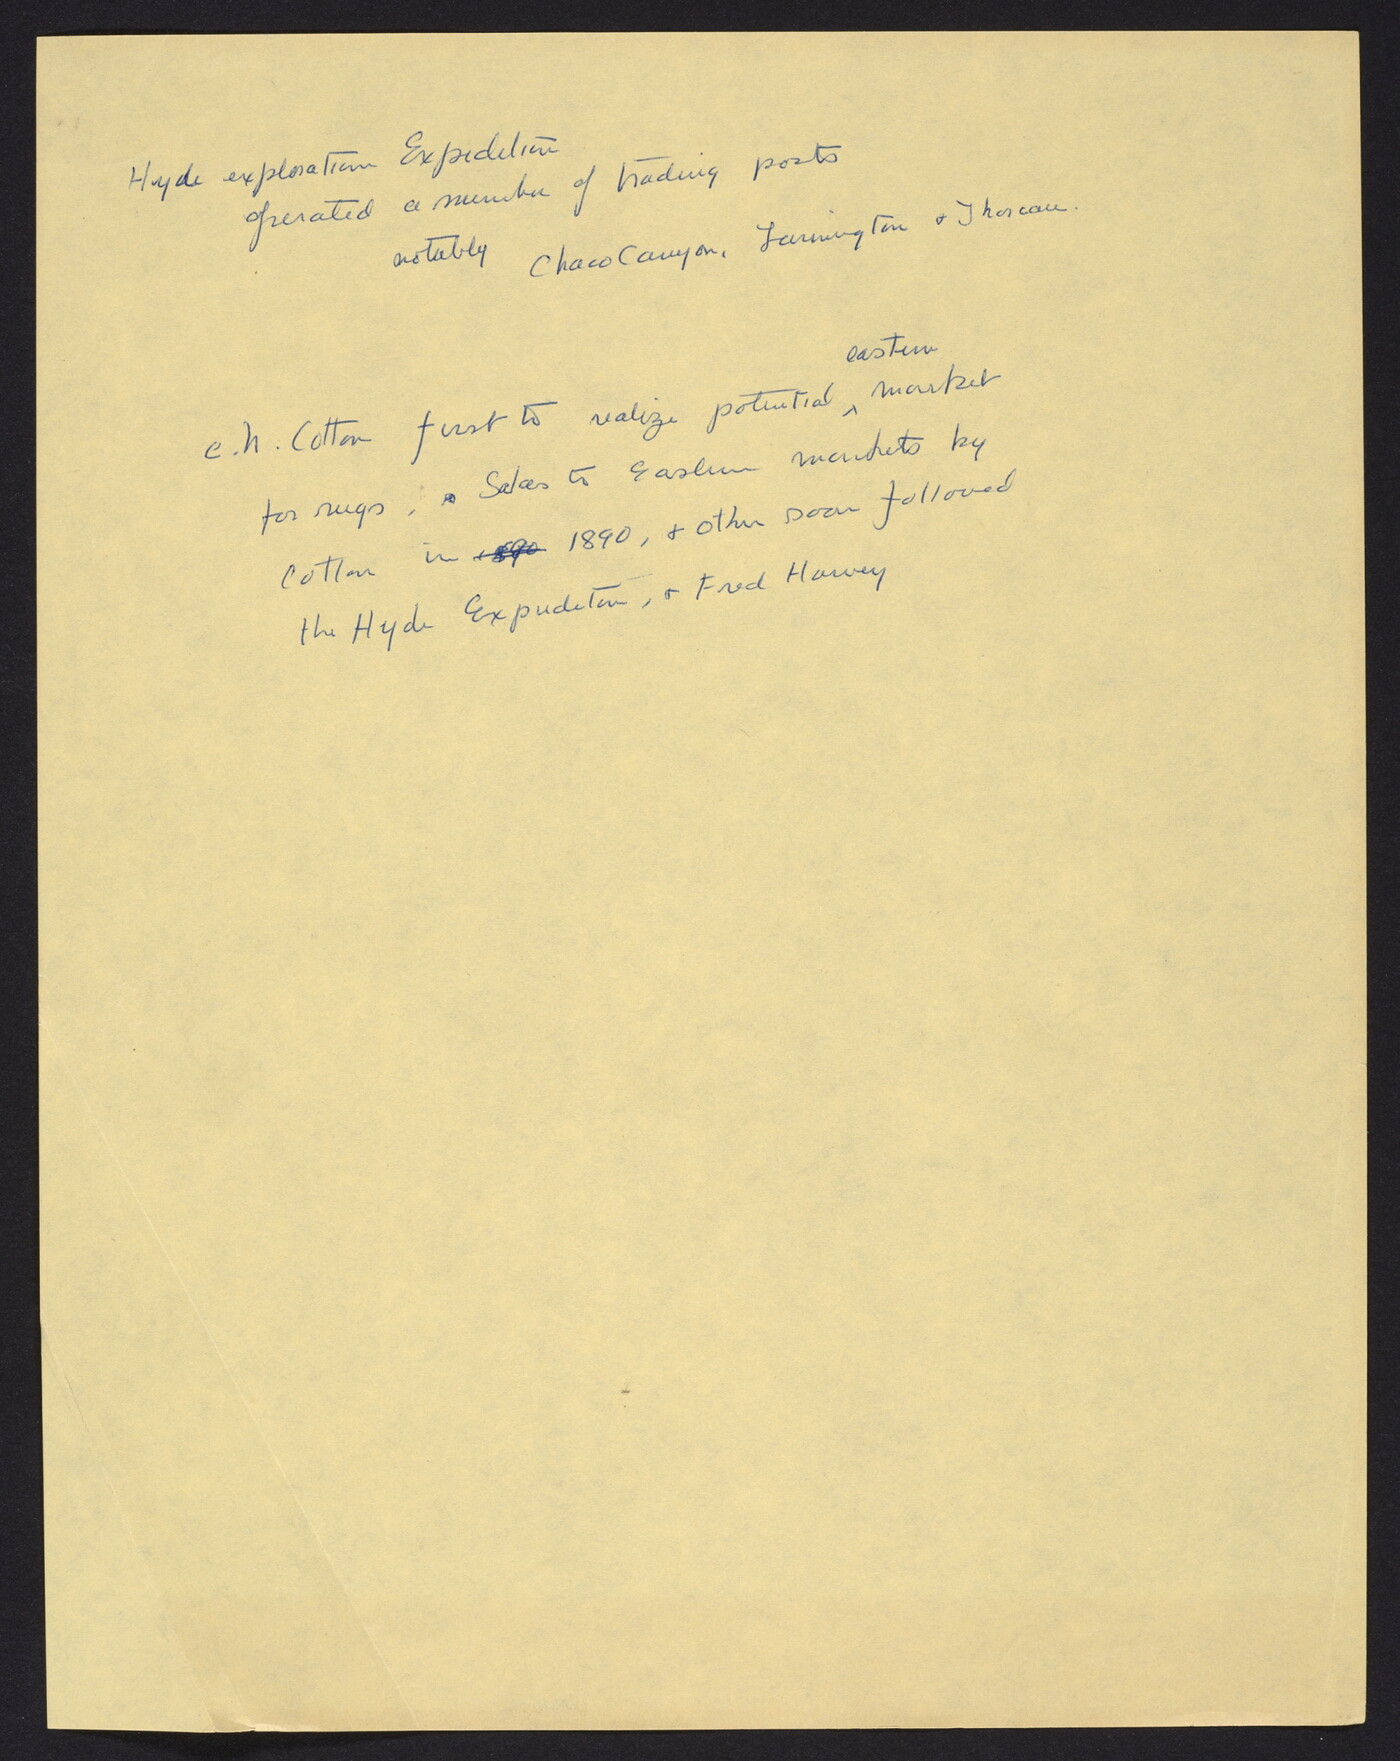 Hyde exploration Expedition
operated a number of trading posts
notably Chaco Canyon, Farmington & Thoreau.
eastern
C.N. Cotton first to realize potential ^ market
for rugs, Sales to Eastern markets by
Cotton in 1890 1890, & other soon followed
the Hyde Expedition, & Fred Harvey